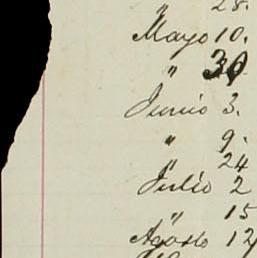 " 28.
Mayo 10.
" 30
Junio 3.
" 9.
" 24
Julio 2
" 15
Agosto 12